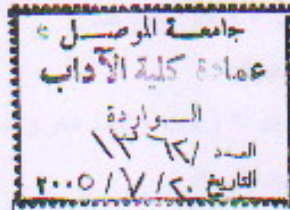 جامعة الموصل
عمادة كلية الآداب
الواردة
العدد / ١٣٦٢
التاريخ ٢٠ / ٧ / ٢٠٠٥